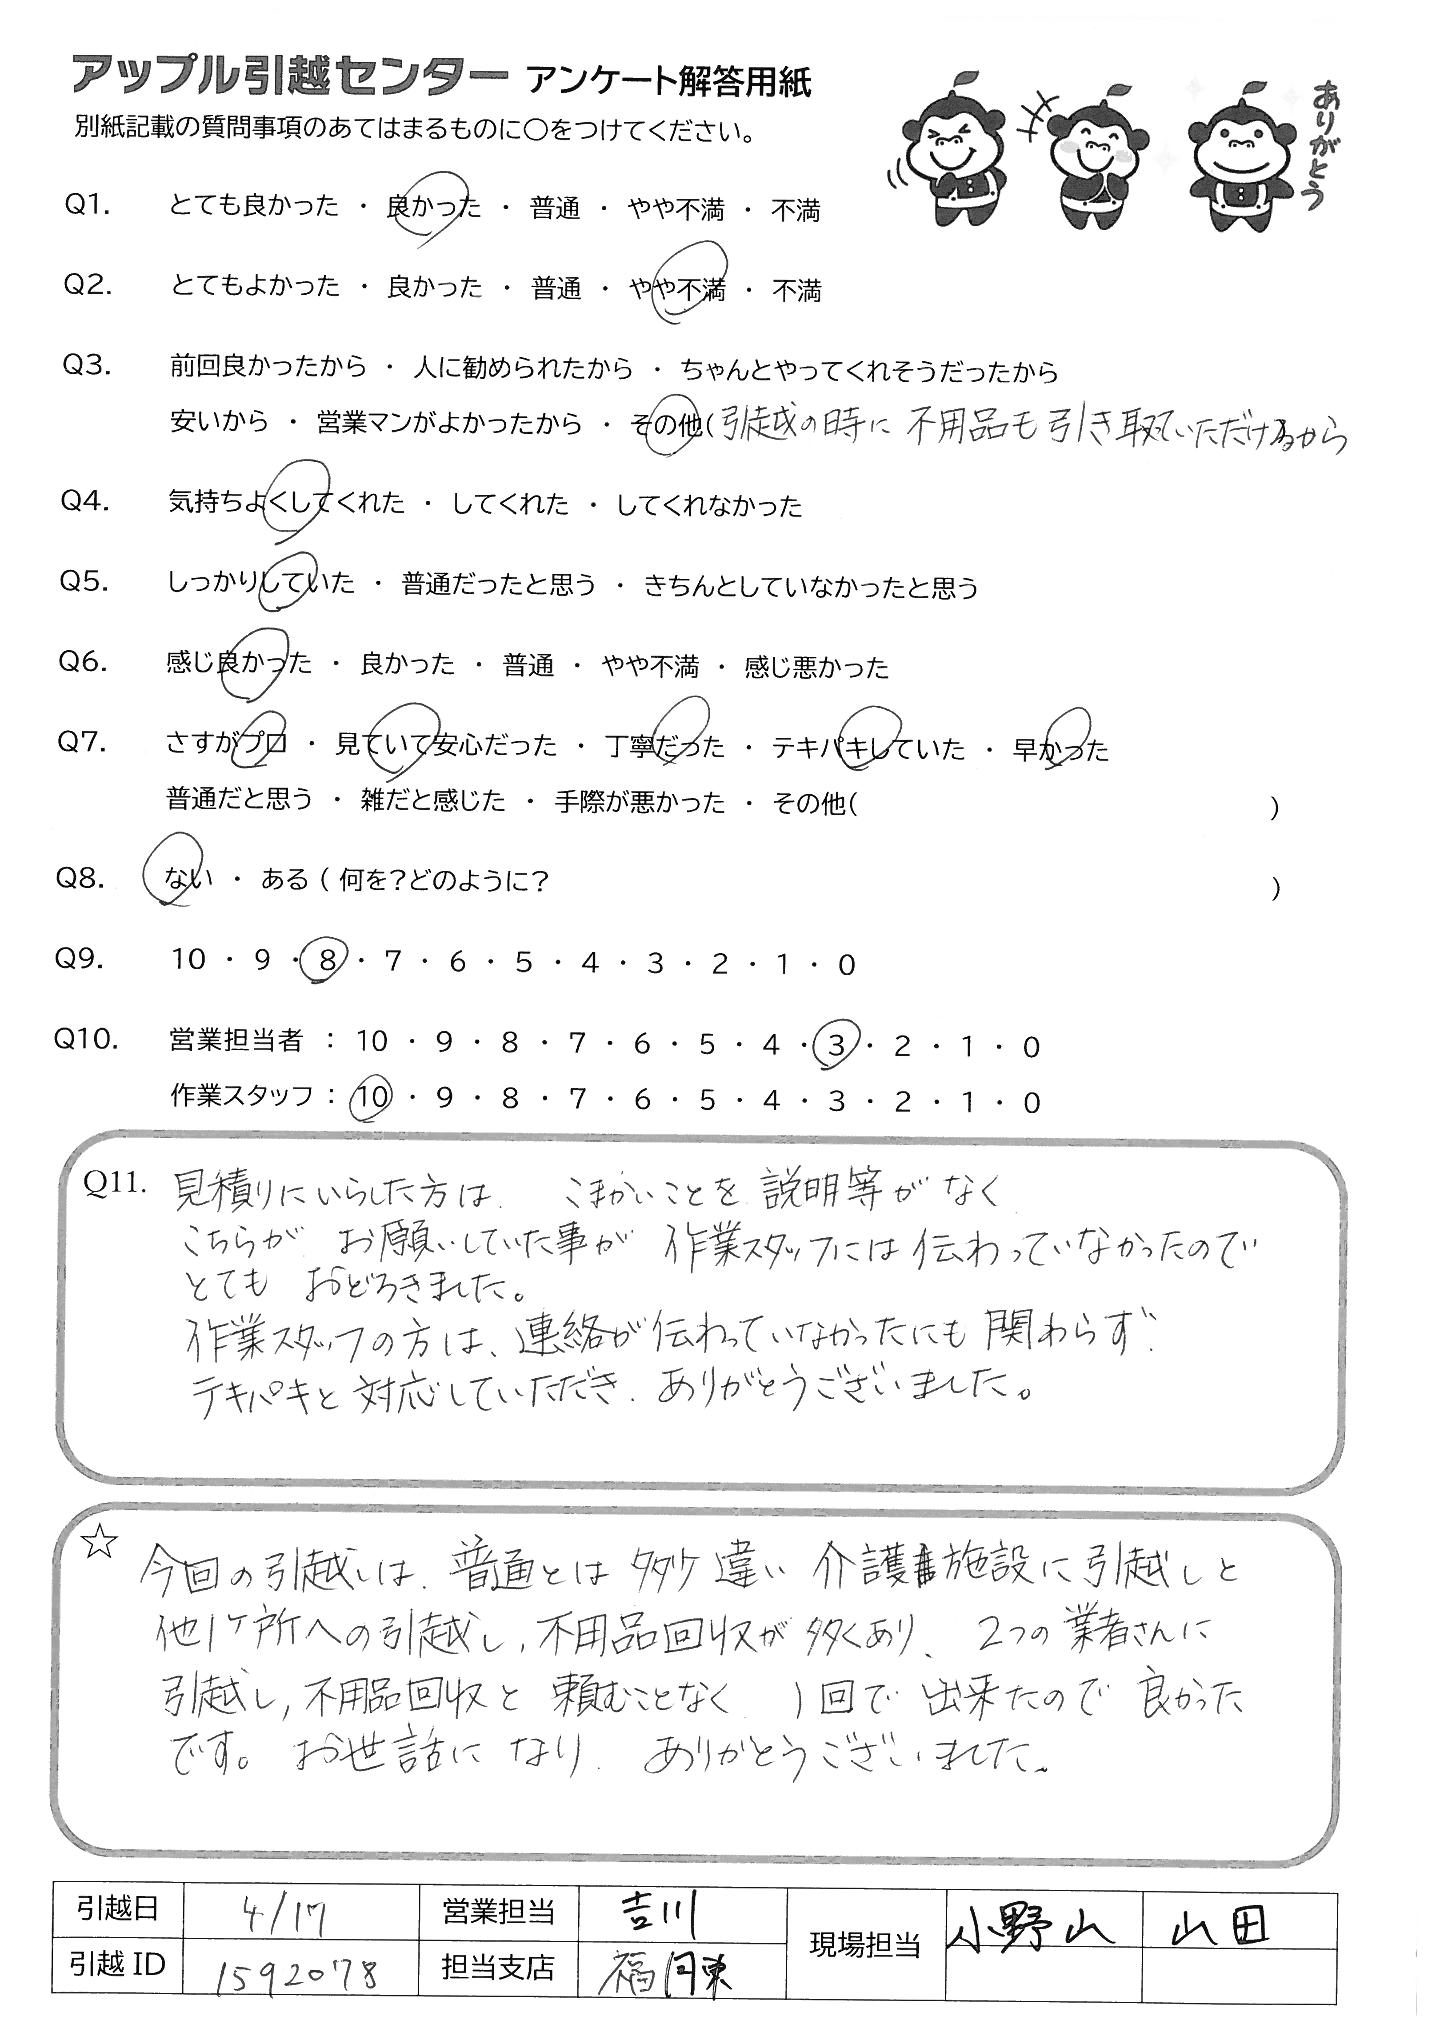 アップル引越センター アンケート解答用紙
別紙記載の質問事項のあてはまるものに〇をつけてください。
ありがとう
Q1. とても良かった ・ 良かった ・ 普通 ・ やや不満 ・ 不満
Q2. とてもよかった ・ 良かった ・ 普通 ・ やや不満 ・ 不満
Q3. 前回良かったから ・ 人に勧められたから ・ ちゃんとやってくれそうだったから
安いから ・ 営業マンがよかったから ・ その他(引越の時に 不用品も引き取っていただけるから
Q4. 気持ちよくしてくれた ・ してくれた ・ してくれなかった
Q5. しっかりしていた ・ 普通だったと思う ・ きちんとしていなかったと思う
Q6. 感じ良かった ・ 良かった ・ 普通 ・ やや不満 ・ 感じ悪かった
Q7. さすがプロ ・ 見ていて安心だった ・ 丁寧だった ・ テキパキしていた ・ 早かった
普通だと思う ・ 雑だと感じた ・ 手際が悪かった ・ その他( )
Q8. ない ・ ある ( 何を?どのように? )
Q9. 10 ・ 9 ・ 8 ・ 7 ・ 6 ・ 5 ・ 4 ・ 3 ・ 2 ・ 1 ・ 0
Q10. 営業担当者 : 10 ・ 9 ・ 8 ・ 7 ・ 6 ・ 5 ・ 4 ・ 3 ・ 2 ・ 1 ・ 0
作業スタッフ : 10 ・ 9 ・ 8 ・ 7 ・ 6 ・ 5 ・ 4 ・ 3 ・ 2 ・ 1 ・ 0
Q11. 見積りにいらした方は、 こまかいことを 説明等が なく
こちらが お願いしていた事が 作業スタッフには伝わっていなかったので
とても おどろきました。
作業スタッフの方は、連絡が伝わっていなかったにも関わらず、
テキパキと対応していただき、ありがとうございました。
☆ 今回の引越しは、普通とは 多少 違い 介護施設に引越しと
他1ケ所への引越し,不用品回収が多くあり、 2つの業者さんに
引越し,不用品回収と 頼むことなく 1回で 出来たので 良かった
です。 お世話に なり、 ありがとうございました。
引越日 4/17 営業担当 吉川 現場担当 小野山 山田
引越ID 1592078 担当支店 福岡東